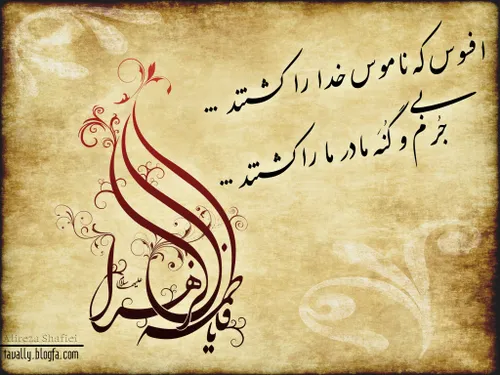 افسوس که ناموس خدا را کشتند ...
بی جرم و گنه مادر ما را کشتند ...
یا فاطمة الزهرا
سلام علیها
Alireza Shafiei
tavally.blogfa.com